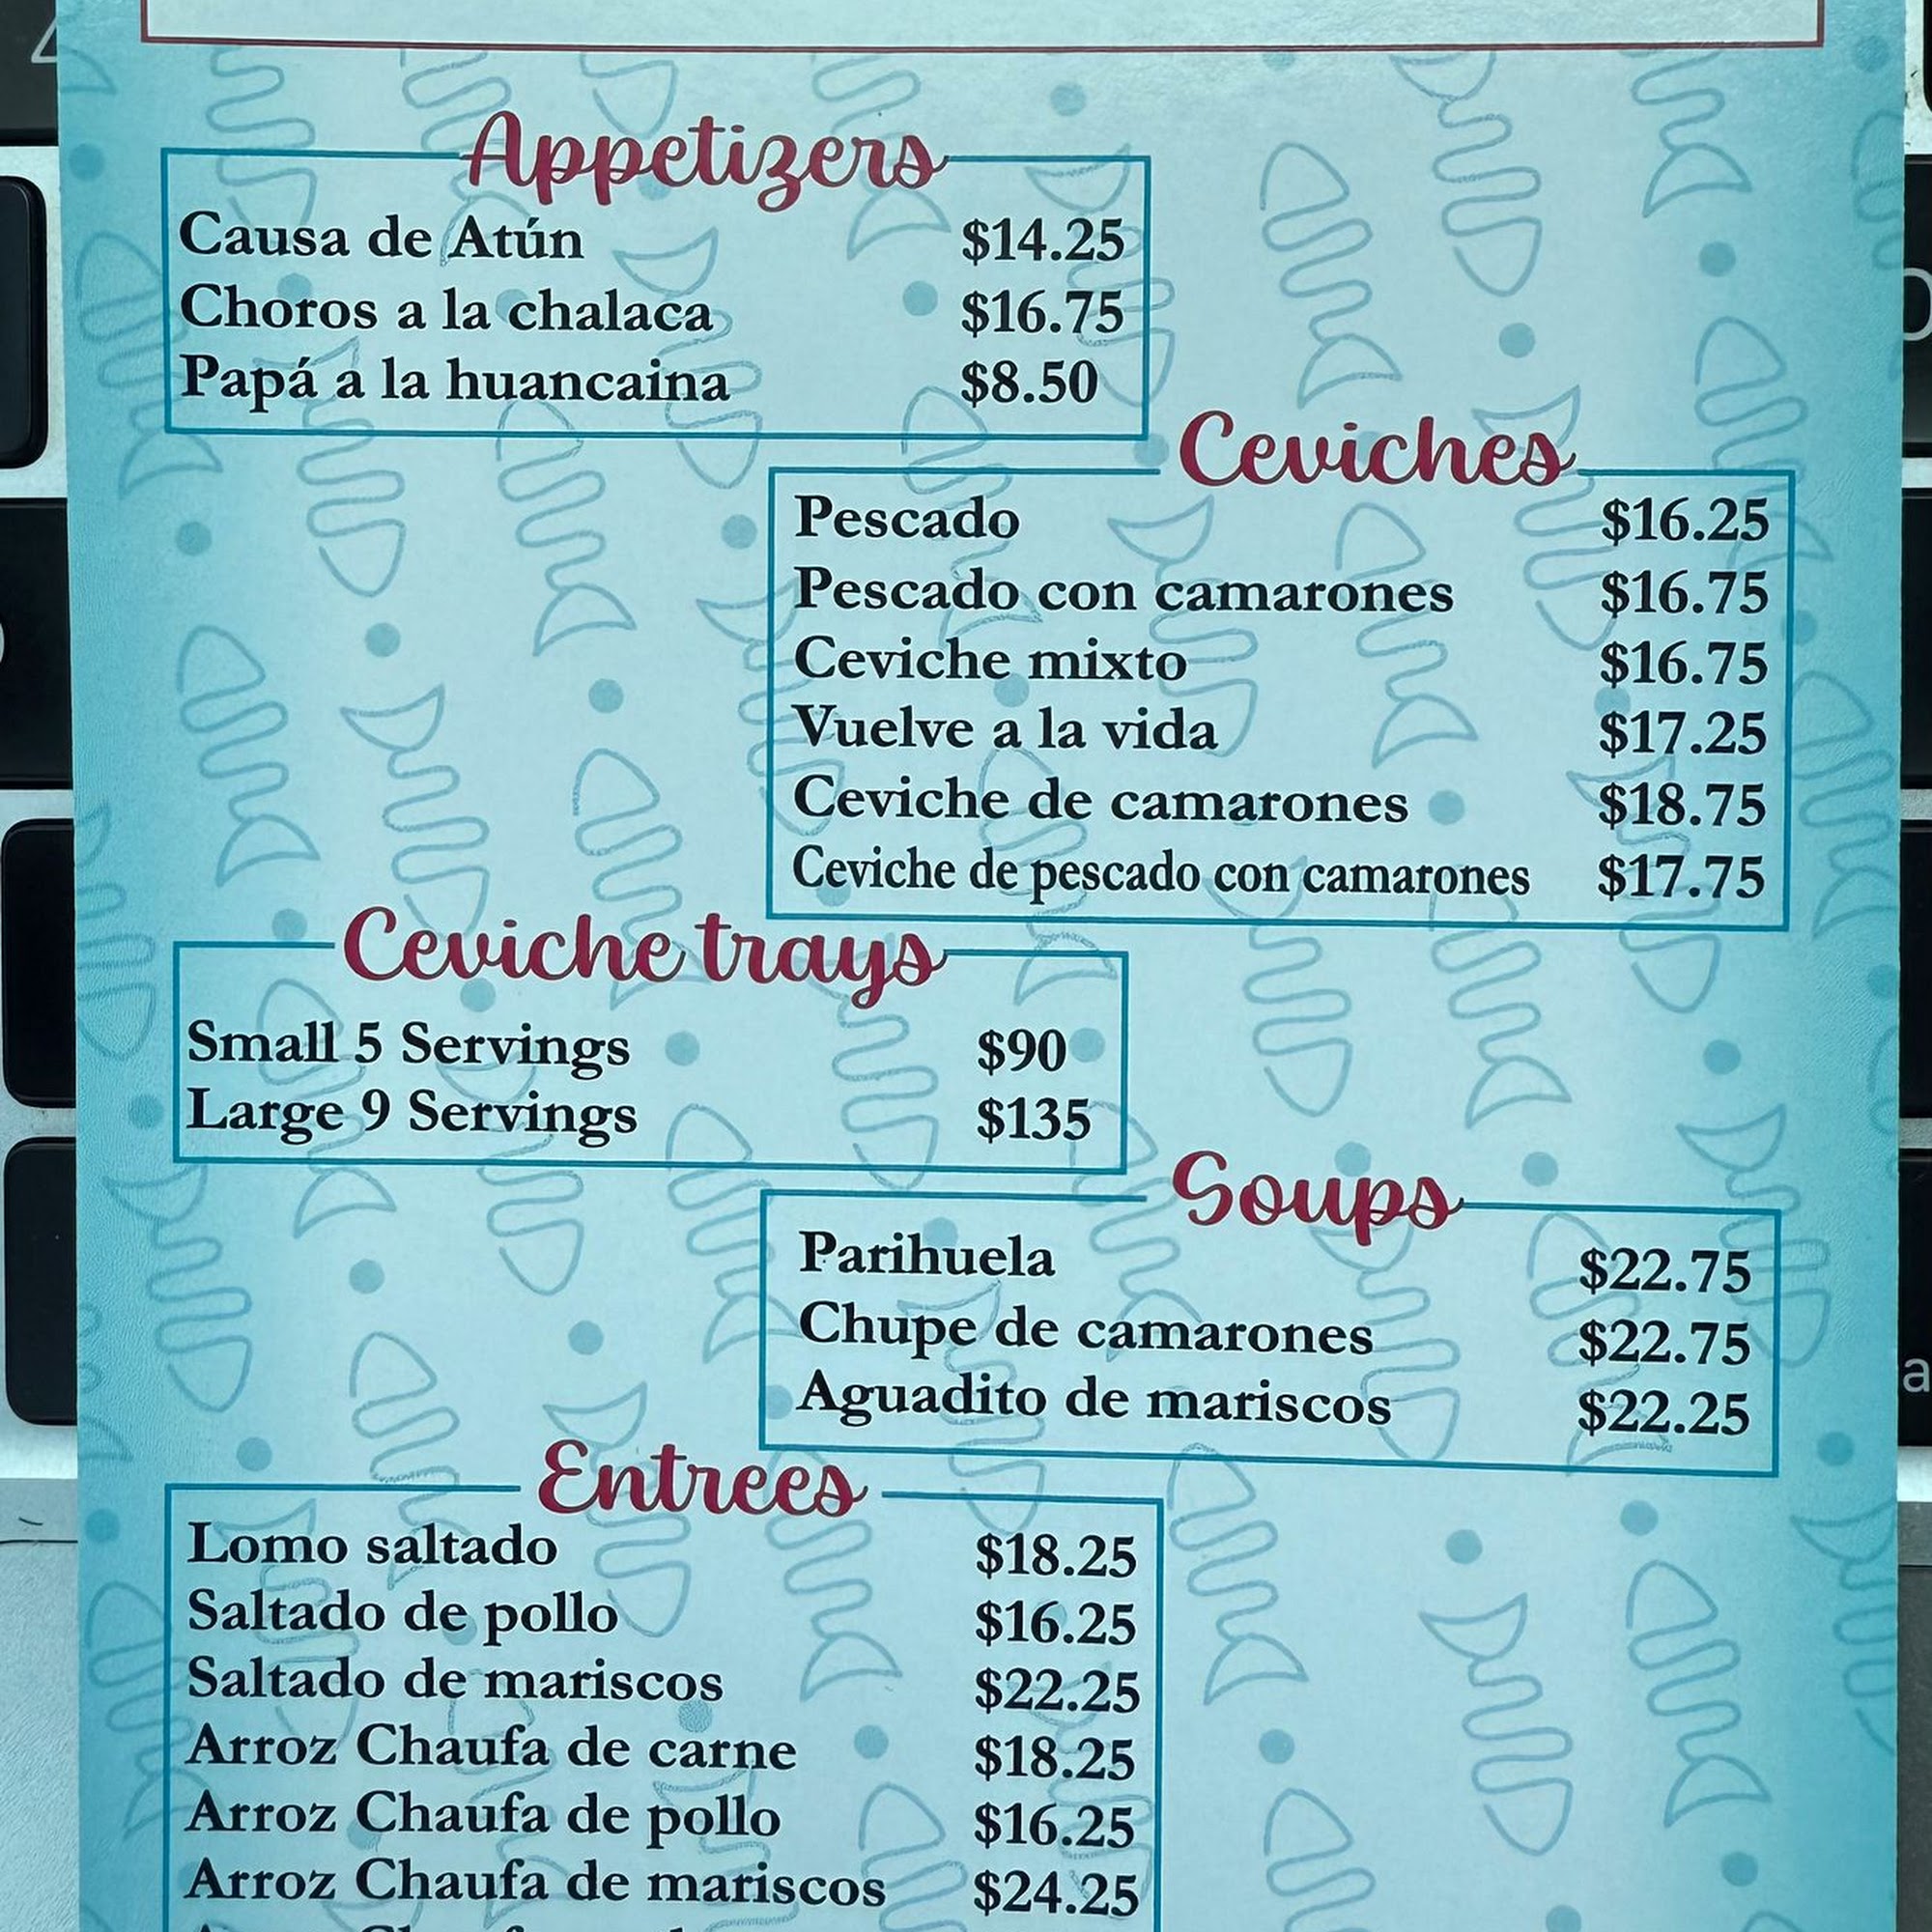 Appetizers
Causa de Atún $14.25
Choros a la chalaca $16.75
Papá a la huancaina $8.50
Ceviches
Pescado $16.25
Pescado con camarones $16.75
Ceviche mixto $16.75
Vuelve a la vida $17.25
Ceviche de camarones $18.75
Ceviche de pescado con camarones $17.75
Ceviche trays
Small 5 Servings $90
Large 9 Servings $135
Soups
Parihuela $22.75
Chupe de camarones $22.75
Aguadito de mariscos $22.25
Entrees
Lomo saltado $18.25
Saltado de pollo $16.25
Saltado de mariscos $22.25
Arroz Chaufa de carne $18.25
Arroz Chaufa de pollo $16.25
Arroz Chaufa de mariscos $24.25